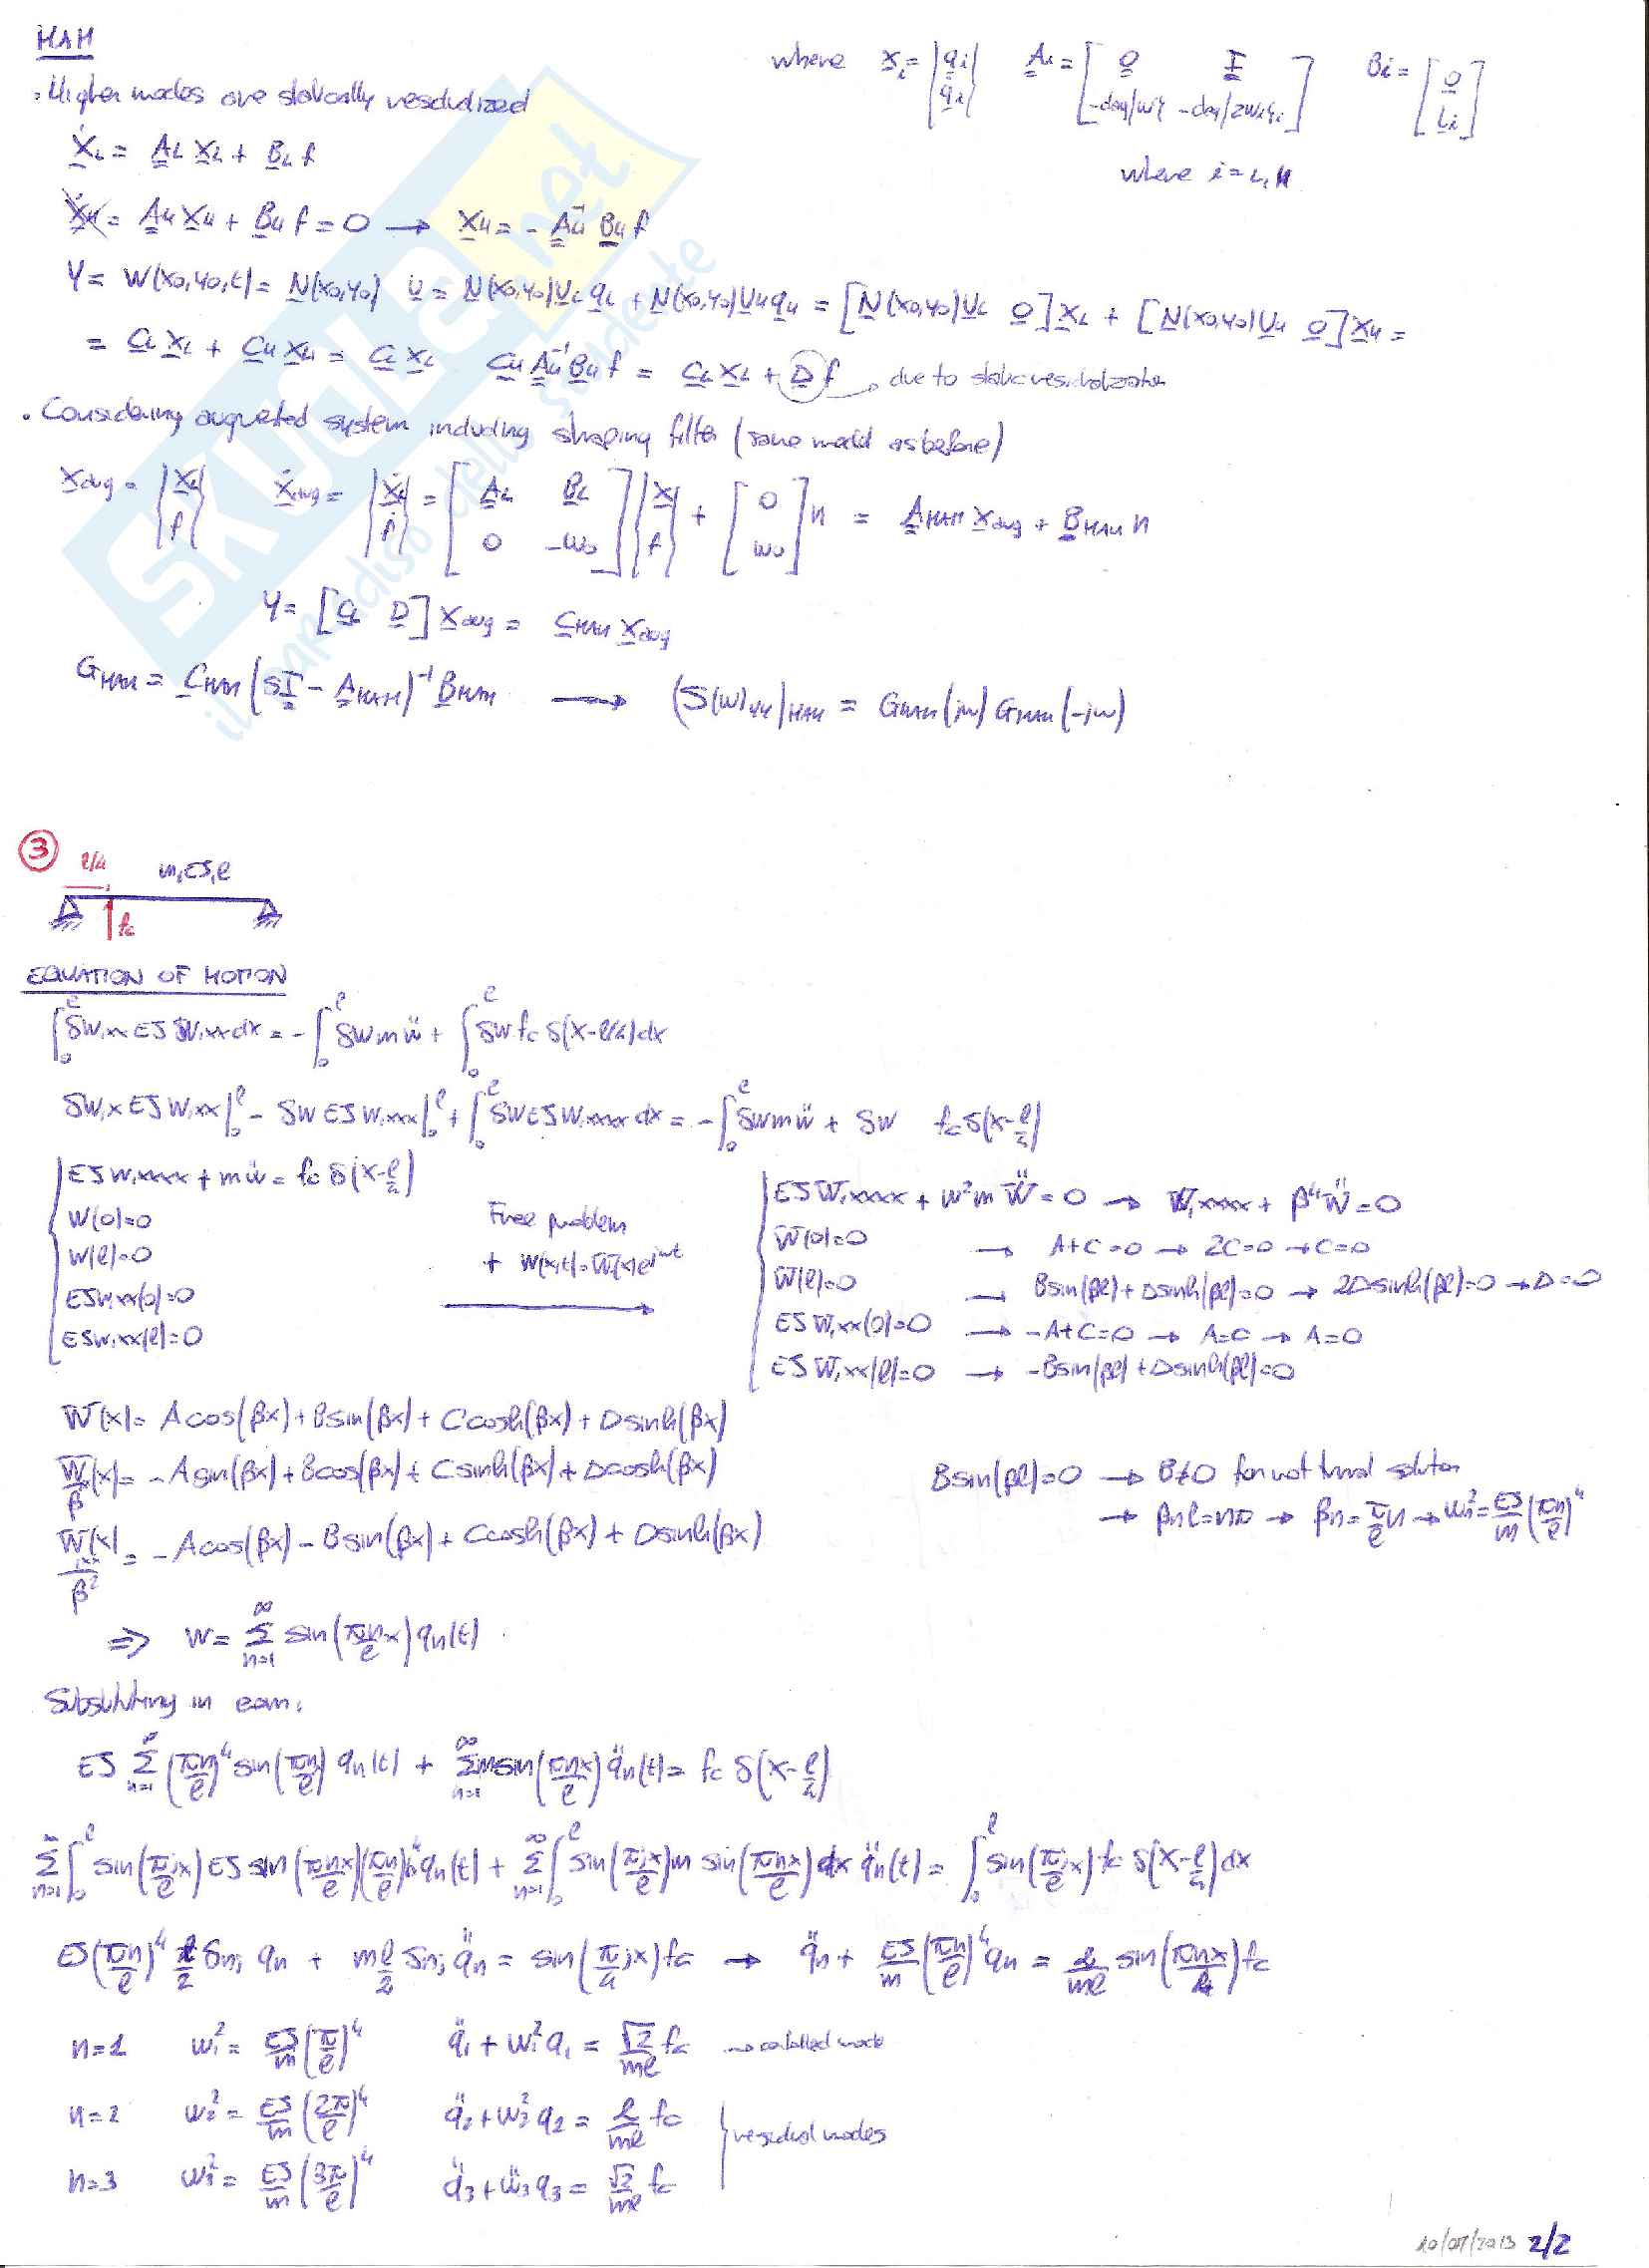 MAM
. Higher modes are statically residualized
where x_i = {q_i / q̇_i} A_i = [0 I / -diag(ω_i² -diag(2ω_iξ_i] B_i = [0 / L_i]
where i = L, H
ẋ_L = A_L x_L + B_L f
ẋ_H = A_H x_H + B_H f = 0 → x_H = - A_H⁻¹ B_H f
Y = W(x0,y0,t) = N(x0,y0) u = N(x0,y0)U_L q_L + N(x0,y0)U_H q_H = [N(x0,y0)U_L 0] x_L + [N(x0,y0)U_H 0] x_H =
= C_L x_L + C_H x_H = C_L x_L C_H A_H⁻¹ B_H f = C_L x_L + D f due to static residualization
. Considering augmented system including shaping filter (same model as before)
x_aug = {x_L / f} ẋ_aug = {ẋ_L / ḟ} = [A_L B_L / 0 -ω0] {x / f} + [0 / ω0] n = A_MAM x_aug + B_MAM n
Y = [C_L D] x_aug = C_MAM x_aug
G_MAM = C_MAM (sI - A_MAM)⁻¹ B_MAM → (S(ω)_yy)_MAM = G_MAM(jω) G_MAM(-jω)
SKUOLA.net
il paradiso dello studente
3
l/4 m, EJ, l
fc
EQUATION OF MOTION
∫₀^l δw,xx EJ δw,xx dx = - ∫₀^l δw m ẅ + ∫₀^l δw fc δ(x-l/4) dx
δw,x EJ w,xx|₀^l - δw EJ w,xxx|₀^l + ∫₀^l δw EJ w,xxxx dx = - ∫₀^l δw m ẅ + δw fc δ(x-l/4)
EJ w,xxxx + m ẅ = fc δ(x-l/4)
w(0)=0
w(l)=0
EJ w,xx(0)=0
EJ w,xx(l)=0
Free problem
+ w(x,t)=W̄(x)e^{iωt}
EJ W̄,xxxx + ω² m Ẅ = 0 → W̄,xxxx + β⁴ Ẅ = 0
W̄(0)=0 → A+C=0 → 2C=0 → C=0
W̄(l)=0 → Bsin(βl)+Dsinh(βl)=0 → 2Dsinh(βl)=0 → D=0
EJ W̄,xx(0)=0 → -A+C=0 → A=C → A=0
EJ W̄,xx(l)=0 → -Bsin(βl)+Dsinh(βl)=0
W̄(x)= Acos(βx)+Bsin(βx)+Ccosh(βx)+Dsinh(βx)
W̄,x(x)/β = -Asin(βx)+Bcos(βx)+Csinh(βx)+Dcosh(βx)
W̄,xx(x)/β² = -Acos(βx)-Bsin(βx)+Ccosh(βx)+Dsinh(βx)
Bsin(βl)=0 → B≠0 for not trivial solution
→ βn l=nπ → βn = π/l n → ωn² = EJ/m (πn/l)⁴
⇒ w = Σ_{n=1}^∞ sin(πn/l x) qn(t)
Substituting in eom:
EJ Σ_{n=1}^∞ (πn/l)⁴ sin(πn/l) qn(t) + Σ_{n=1}^∞ m sin(πnx/l) q̈n(t) = fc δ(x-l/4)
Σ_{n=1}^∞ ∫₀^l sin(πjx/l) EJ sin(πnx/l)(πn/l)⁴ qn(t) + Σ_{n=1}^∞ ∫₀^l sin(πjx/l) m sin(πnx/l) dx q̈n(t) = ∫₀^l sin(πjx/l) fc δ(x-l/4) dx
EJ(πn/l)⁴ l/2 δnj qn + ml/2 δnj q̈n = sin(π/4 jx) fc → q̈n + EJ/m (πn/l)⁴ qn = 2/ml sin(πnx/4) fc
n=1 ω1² = EJ/m (π/l)⁴ q̈1 + ω1² q1 = √2/ml fc → controlled mode
n=2 ω2² = EJ/m (2π/l)⁴ q̈2 + ω2² q2 = 2/ml fc
residual modes
n=3 ω3² = EJ/m (3π/l)⁴ q̈3 + ω̈3 q3 = √2/ml fc
10/07/2013 2/2